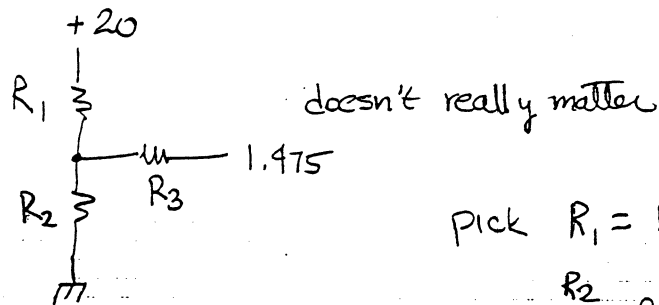 +20
R1
doesn't really matter
1.475
R3
R2
pick R1 =
R2